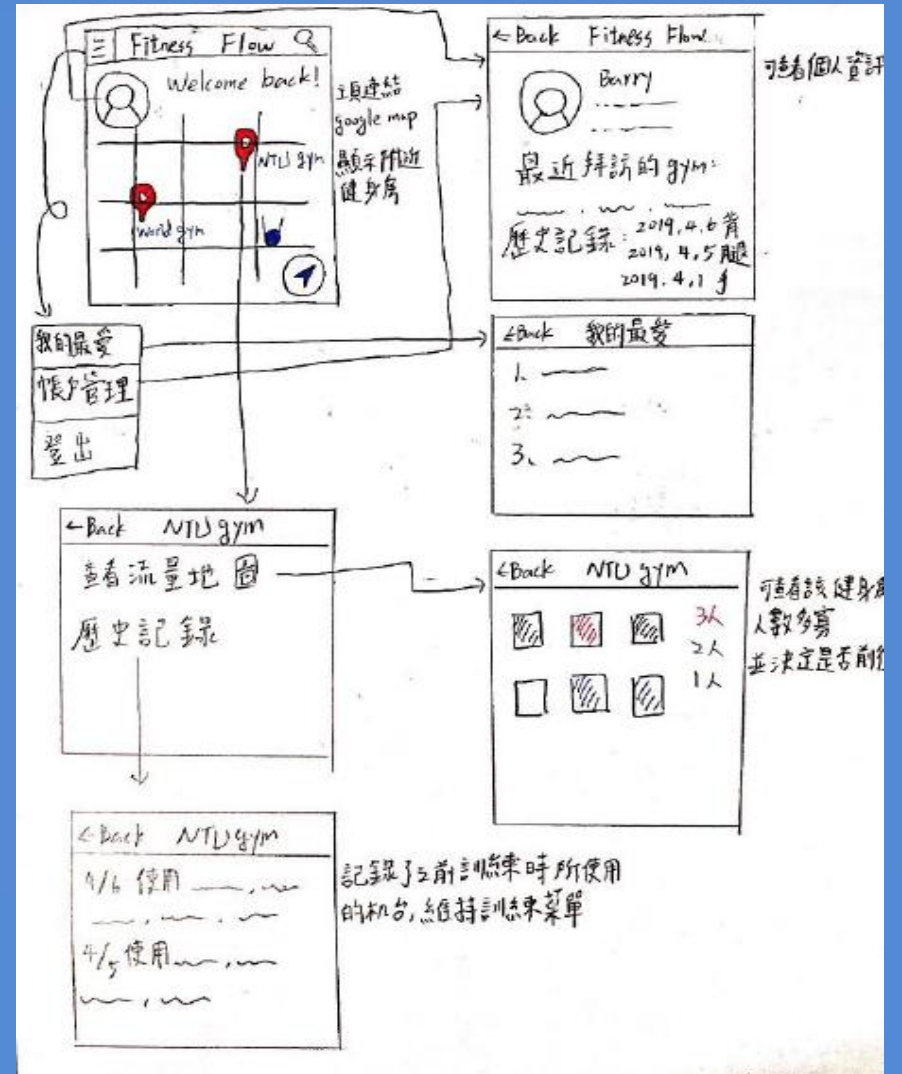 Fitness Flow
Welcome back!
NTU gym
World gym
須連結
google map
顯示附近
健身房
我的最愛
帳戶管理
登出
←Back Fitness Flow
Barry
最近拜訪的gym:
歷史記錄: 2019.4.6 背
2019.4.5 腿
2019.4.1
可查看個人資訊
←Back 我的最愛
1.
2.
3.
←Back NTU gym
查看流量地圖
歷史記錄
←Back NTU gym
3人
2人
1人
可查看該健身房
人數多寡
並決定是否前往
←Back NTU gym
4/6 使用
4/5 使用
記錄了之前訓練時所使用
的机台,維持訓練菜單